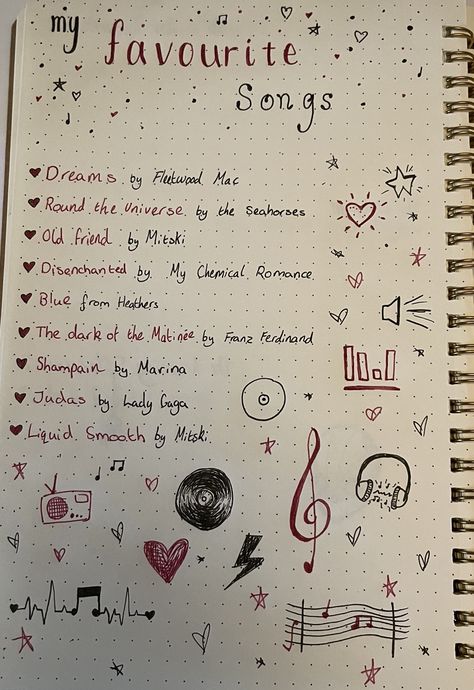 my
favourite
Songs
Dreams by Fleetwood Mac
Round the universe by the Seahorses
Old friend by Mitski
Disenchanted by My Chemical Romance
Blue from Heathers
The dark of the Matinée by Franz Ferdinand
Shampain by Marina
Judas by Lady Gaga
Liquid Smooth by Mitski